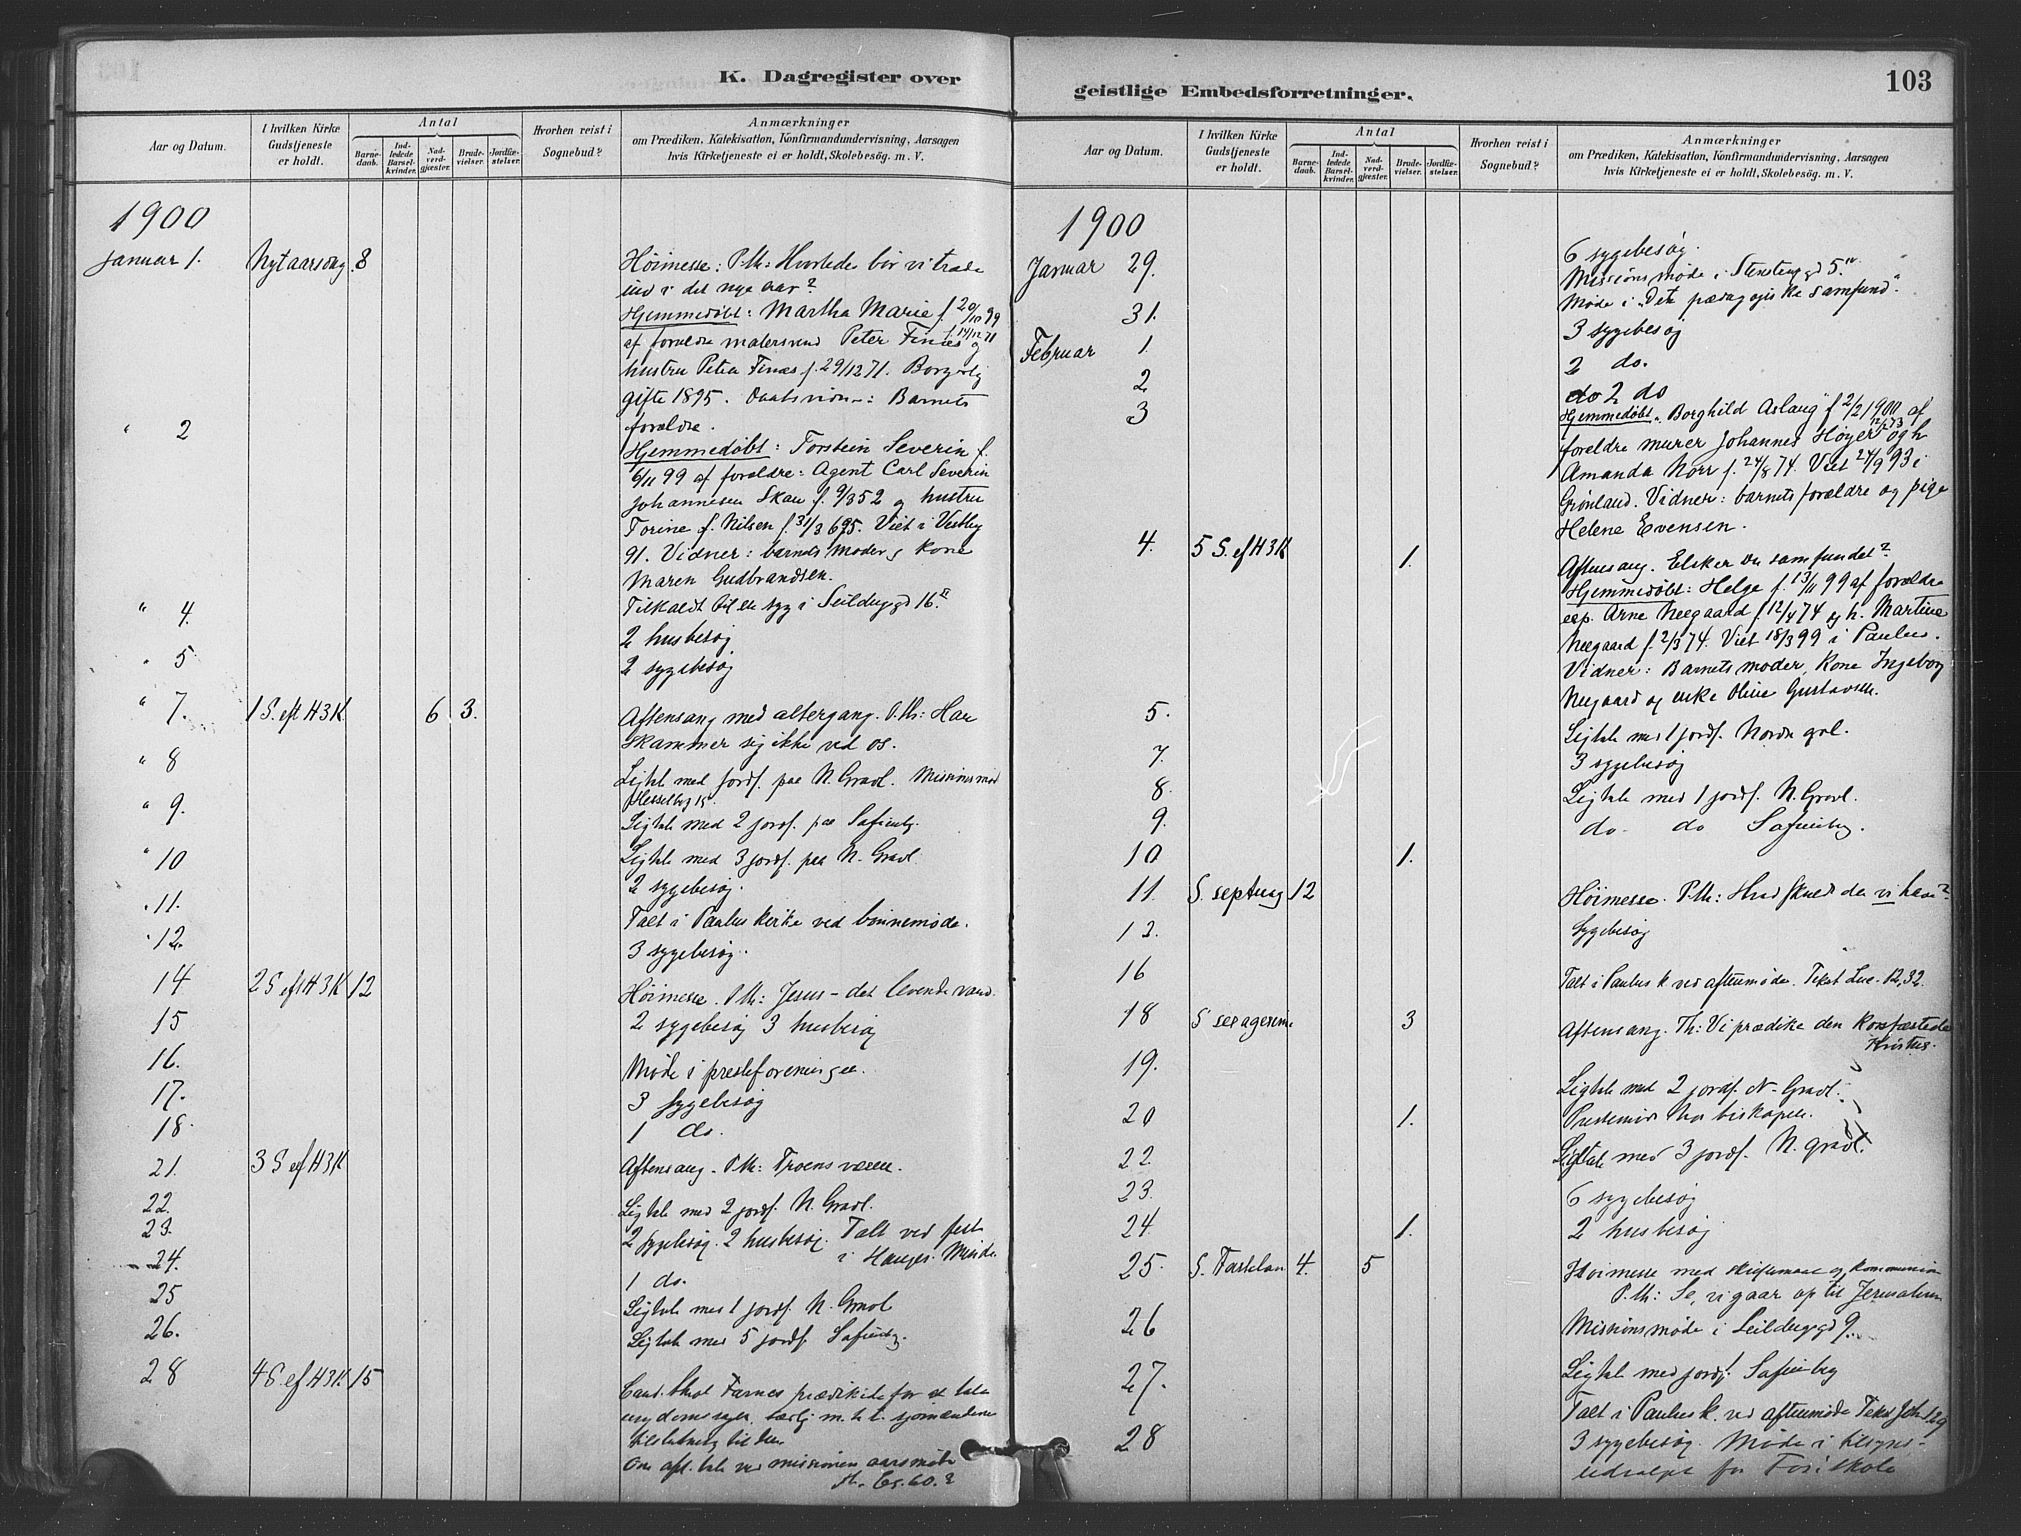 K. Dagregister over
Aar og Datum.
I hvilken Kirke
Gudstjeneste
er holdt.
Antal
Barne-
daab.
Ind-
ledede
Barsel-
kvinder.
Nad-
verd-
gjæster.
Brude-
vielser.
Jordfæ-
stelser.
Hvorhen reist i
Sognebud?
Anmærkninger
om Prædiken, Katekisation, Konfirmandundervisning, Aarsagen
hvis Kirketjeneste ei er holdt, Skolebesög. m. V.
1900
Januar 1. Nytaarsdag. 8 Höimesse: P.Th: Hvorledes bör vi træde
ind i det nye aar?
Hjemmedöbt: Martha Marie f. 20/10 99
af forældre malersvend Peter Finæs f. 14/12 71 og
hustru Petra Finæs f. 29/12 71. Borgerlig
gifte 1895. Daabsvidn-: Barnets
forældre.
" 2 Hjemmedöbt: Torstein Severin f.
6/11 99 af forældre: Agent Carl Severin
Johannesen Skau f. 9/3 52 og hustru
Torine f. Nilsen f. 31/3 65. Viet i Vestby
91. Vidner: barnets moder og kone
Maren Gudbrandsen.
" 4. Tilkaldt til en syg i Seildugsgd 16.
2 husbesög
" 5 2 sygebesög
" 7. 1 S. eft H3K. 6 3. Aftensang med altergang. P.Th: Han
skammer sig ikke ved os.
" 8 Ligtale med jordf. paa N. Gravl. Missionsmöd
Hesselbg 15.
" 9. Ligtale med 2 jordf. paa Sofienbg.
" 10 Ligtale med 3 jordf. paa N. Gravl.
2 sygebesög.
" 11. Talt i Paulus kirke ved bönnemöde.
" 12. 3 sygebesög.
14 2 S eft H3K 12 Höimesse. P.Th: Jesus - det levende vand.
15 2 sygebesög 3 husbesög
16. Möde i presteforeningen.
17. 3 sygebesög
18. 1 do.
21. 3 S eft H3K Aftensang. P.Th: Troens væsen.
22. Ligtale med 2 jordf. N. Gravl.
23. 2 sygebesög. 2 husbesög. Talt ved fest
i Hauges Minde
24. 1 do.
25 Ligtale med 1 jordf. N. Gravl
26. Ligtale med 5 jordf. Sofienbg.
28 4 S. ef H3K 15 Cand. theol Farnes prædikede for at tale
ungdomssagen, særlig m. h. t. sjömændenes
tilslutning til den
Om aft. tale ved missionens aarsmöde
Es. 60.2
geistlige Embedsforretninger.
103
Aar og Datum.
I hvilken Kirke
Gudstjeneste
er holdt.
Antal
Barne-
daab.
Ind-
ledede
Barsel-
kvinder.
Nad-
verd-
gjæster.
Brude-
vielser.
Jordfæ-
stelser.
Hvorhen reist i
Sognebud?
Anmærkninger
om Prædiken, Katekisation, Konfirmandundervisning, Aarsagen
hvis Kirketjeneste ei er holdt, Skolebesög. m. V.
1900
6 sygebesög.
Januar 29. Missionsmöde i Stenstrupgd 5.
Möde i "Det pædagogiske samfund".
31. 3 sygebesög
Februar 1. 2 do.
2 do 2 do
3 Hjemmedöbt. Borghild Aslaug f 2/2 1900 af
forældre murer Johannes Höyer 12/12 73 og h.
Amanda Norr f. 24/8 74. Viet 24/9 93 i
Grönland. Vidner: barnets forældre og pige
Helene Evensen.
4. 5 S. ef H3K 1. Aftensang. Elsker du samfundet?
Hjemmedöbt: Helge f. 13/11 99 af forældre
exp. Arne Neegaard f. 12/4 74 og h. Martine
Neegaard f. 2/3 74. Viet 18/3 99 i Paulus.
Vidner: Barnets moder, Kone Ingeborg
Neegaard og enke Oline Gustavsen.
5. Ligtale med 1 jordf. Nordre gvl.
7. 3 sygebesög
8. Ligtale med 1 jordf. N. Gravl.
9. do. do Sofienbg.
10 1.
11. S. septuag 12 Höimesse. P.Th: Hvad skulde da vi have?
12. Sygebesög
16 Talt i Paulus k ved aftenmöde. Tekst Luc. 12,32.
18 S sexagesima 3 Aftensang. Th: Vi prædike den korsfæstede
Kristus.
19. Ligtale med 2 jordf. N. Gravl.
20 1. Prestemöde hos biskopen.
22. Ligtale med 3 jordf. N. gravl.
23. 6 sygebesög
24. 1. 2 husbesög
25. S. Fastelavn 4. 5 Höimesse med skriftemaal og kommunion
P.Th: Se, vi gaar op til Jerusalem
26 Missionsmöde i Seildugsgd 9.
27. Ligtale med jordf. Sofienbg
Talt i Paulus k. ved aftenmöde Tekst Joh 1.29
28 3 sygebesög. Möde i tilsyns-
udvalget for Fos skole